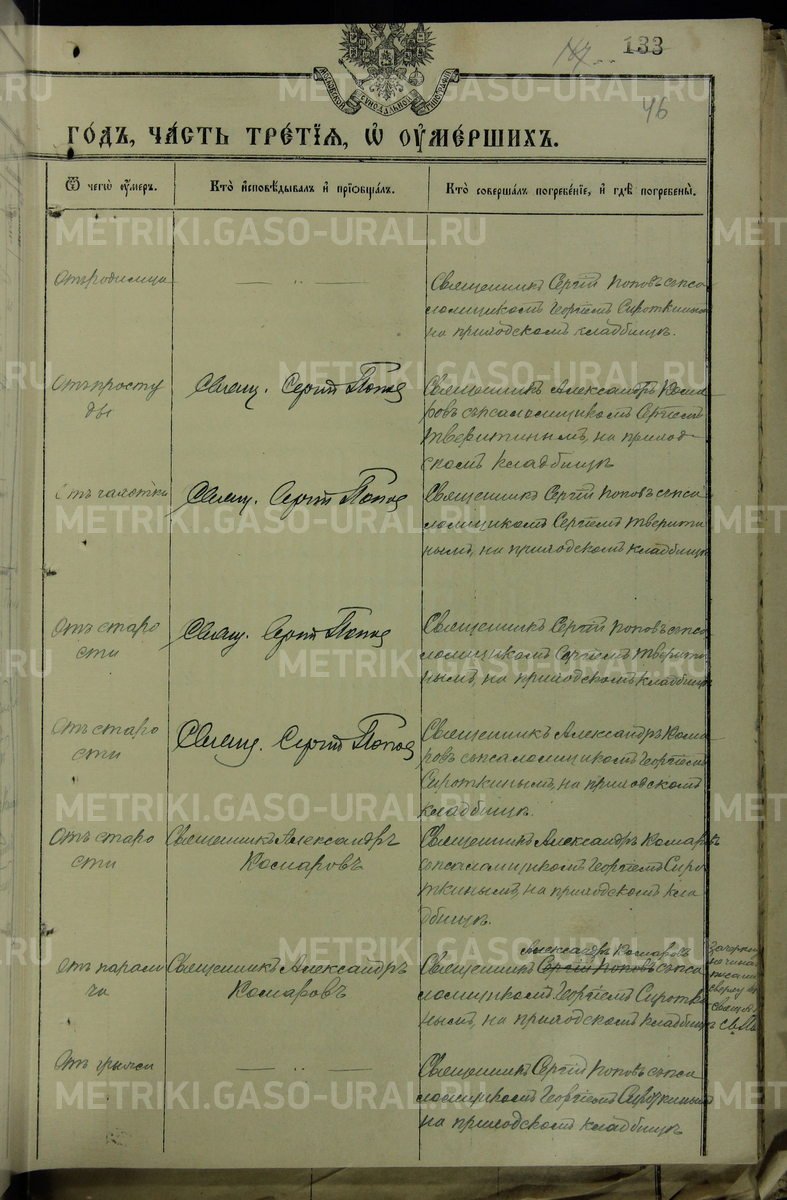 133
46
МОСКОВСКОЙ СѴНОДАЛЬНОЙ ТИПОГРАФІИ
ГОДЪ, ЧАСТЬ ТРЕТІЯ, Ѡ ОУМЕРШИХЪ.
Ѿ чегѡ оумеръ.
Кто исповѣдывалъ и пріобщалъ.
Кто совершалъ погребеніе, и гдѣ погребены.
Отъ родимца
— „ —
Священникъ Сергій Поповъ съ пса
ломщикомъ Георгіемъ Сироткинымъ
на приходскомъ кладбищѣ.
Отъ просту
ды
Свящ. Сергій Попов
Священникъ Александръ Кома
ровъ съ псаломщикомъ Сергіемъ
Тверитинымъ, на приход
скомъ кладбищѣ
Отъ чахотки
Свящ. Сергій Попов
Священникъ Сергій Поповъ съ пса
ломщикомъ Сергіемъ Тверити
нымъ, на приходскомъ кладбищѣ
Отъ старо
сти
Свящ. Сергій Попов
Священникъ Сергій Поповъ съ пса
ломщикомъ Сергіемъ Тверити
нымъ, на приходскомъ кладбищѣ
Отъ старо
сти
Свящ. Сергій Попов
Священникъ Александръ Кома
ровъ съ псаломщикомъ Георгіемъ
Сироткинымъ, на приходскомъ
кладбищѣ.
Отъ старо
сти
Священникъ Александръ
Комаровъ
Священникъ Александръ Комаровъ
съ псаломщикомъ Георгіемъ Сиро
ткинымъ, на приходскомъ кла
дбищѣ.
Отъ парали
ча
Священникъ Александръ
Комаровъ
Александръ Комаровъ
Священникъ Сергій Поповъ съ пса
ломщикомъ Георгіемъ Сиротки
нымъ, на приходскомъ кладбищѣ
сверху
Отъ грыжи
— „ —
Священникъ Сергій Поповъ съ пса
ломщикомъ Георгіемъ Сироткинымъ
на приходскомъ кладбищѣ
METRIKI.GASO-URAL.RU